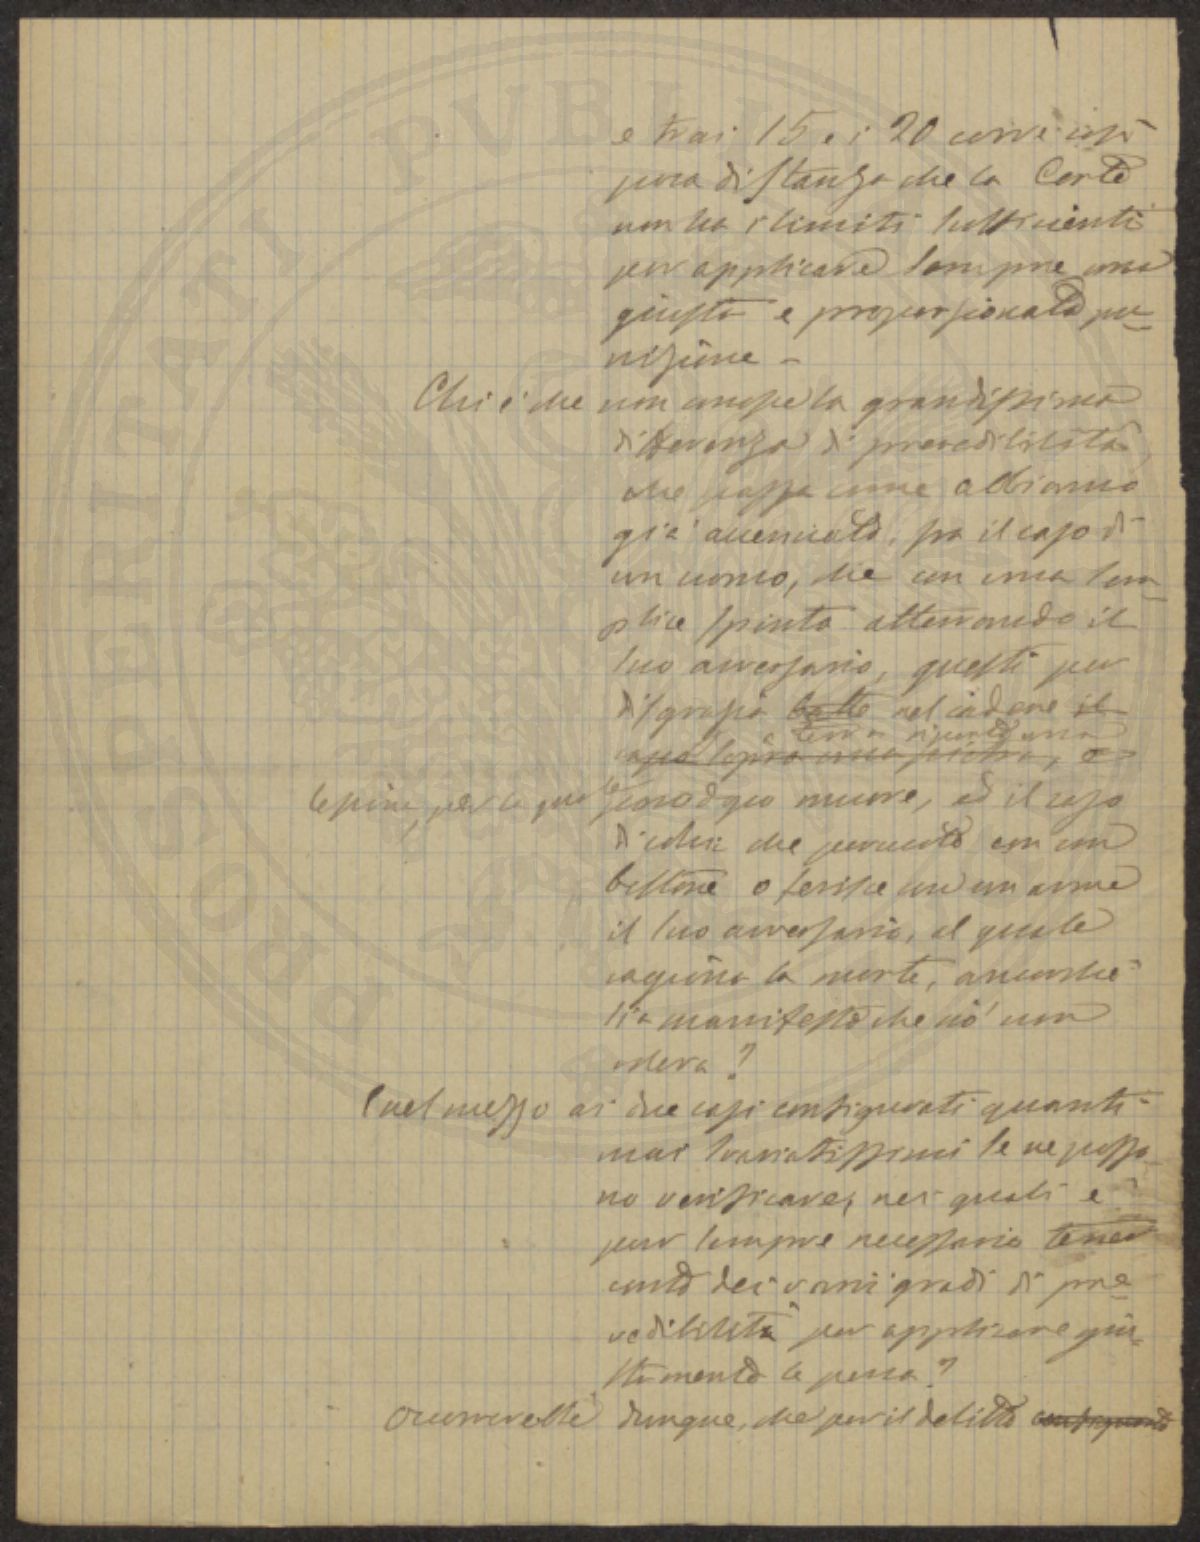 e trai 15 e i 20 corre così
poca distanza che la Corte
non ha i limiti sufficienti
per applicare sempre una
giusta e proporzionata pu-
nizione -
Chi è che non conosce la grandissima
differenza di prevedibilità,
che passa come abbiamo
già accennato, fra il caso di
un uomo, che con una sem-
plice spinta atterrando il
suo avversario, questi per
disgrazia batte nel cadere il
terra riporta una
capo sopra una pietra, e
lesione, per la quale muore, ed il caso
di colui che percuote con un
bastone o ferisce con un arme
il suo avversario, al quale
cagiona la morte, ancorché
sia manifesto che ciò non
voleva?
E nel mezzo ai due casi configurati quanti
mai svariatissimi se ne posso-
no verificare, nei quali è
pur sempre necessario tener
conto dei varii gradi di pre-
vedibilità per applicare giu-
stamente la pena?
Occorrerebbe dunque, che per il delitto
PROSPERITATI PUBLI